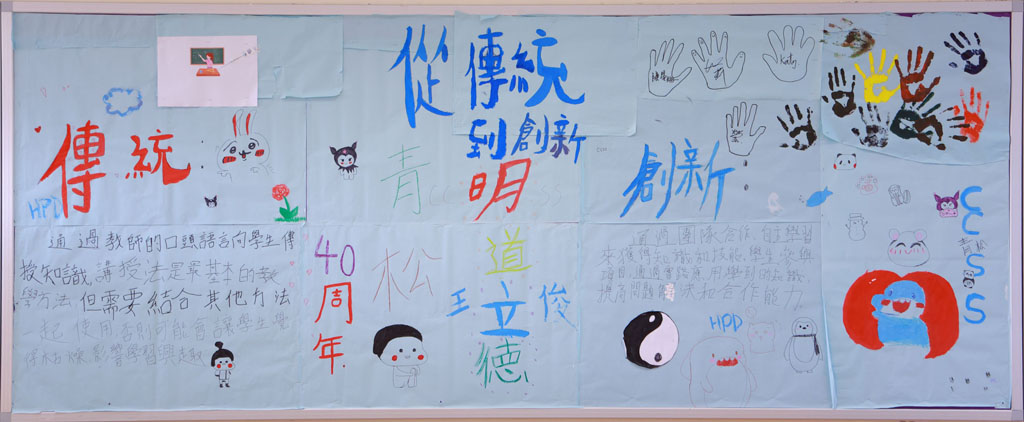 從傳統
到創新
傳統
HPD
通過教師的口頭語言向學生傳
授知識 講授法是最基本的教
學方法 但需要結合其他方法
一起使用否則可能會讓學生覺
影響學習興趣
40
周
年
青
松
明
道
立
德
王
俊
創新
Katy
通過團隊合作 自主學習
來獲得知識和技能 學生參與
項目 通過實踐 學到的知識
提高問題 決和合作能力
HPD
CCSS
青松